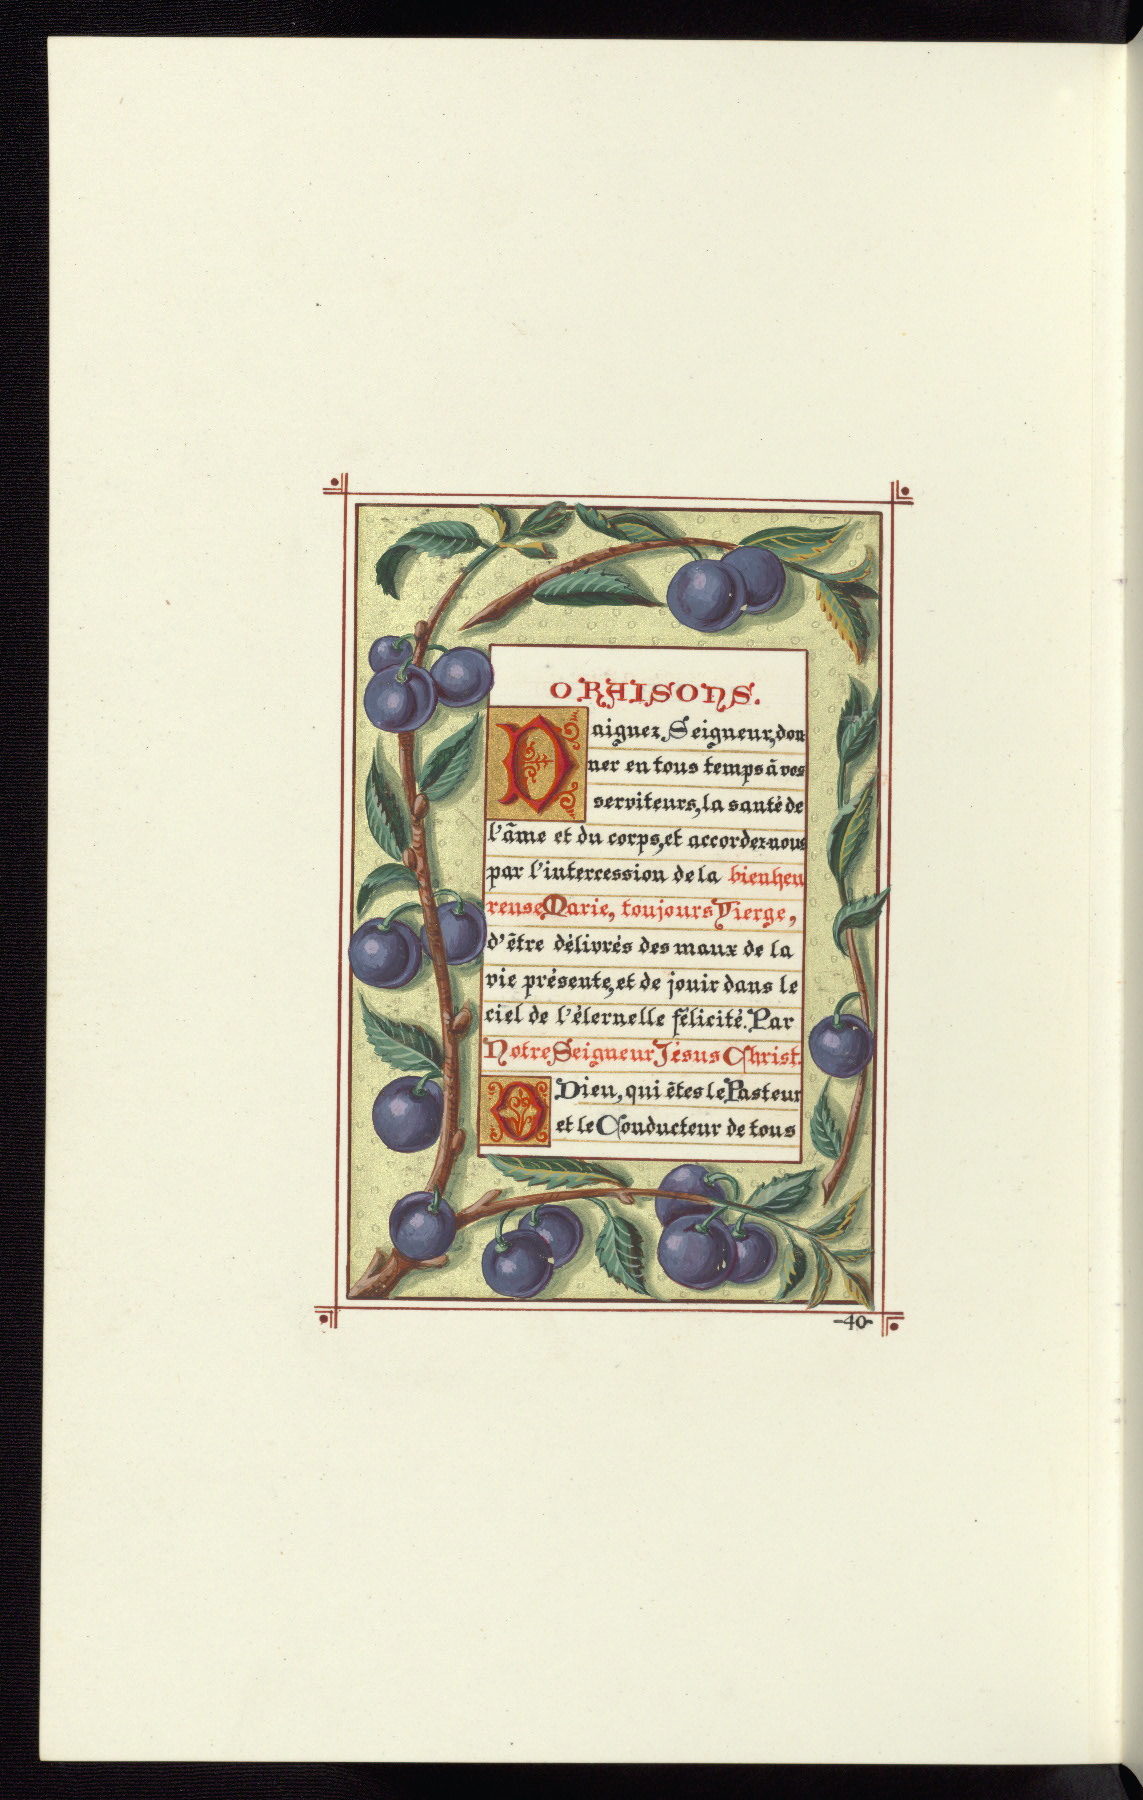 ORAISONS.
Daignez, Seigneur, don
ner en tous temps à vos
serviteurs, la santé de
l'âme et du corps, et accordez-nous
par l'intercession de la bienheu
reuse Marie, toujours Vierge,
d'être délivrés des maux de la
vie présente, et de jouir dans le
ciel de l'éternelle félicité. Par
Notre Seigneur Jésus Christ.
O Dieu, qui êtes le Pasteur
et le Conducteur de tous
-40-